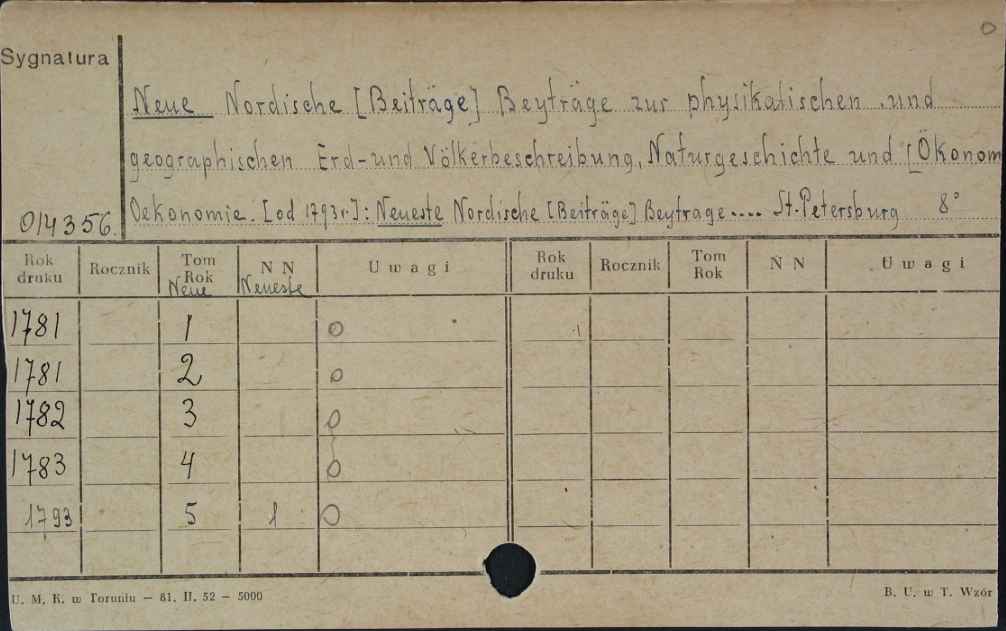 O
Sygnatura
Neue Nordische [Beiträge] Beyträge zur physikalischen und
geographischen Erd-und Völkerbeschreibung, Naturgeschichte und [Ökonom
014356. Oekonomie. [od 1793r.]: Neueste Nordische [Beiträge] Beytrage.... St. Petersburg 8°
Rok druku Rocznik Tom Rok N N Uwagi Rok druku Rocznik Tom Rok N N Uwagi
Neue Neueste
1781 1 0
1781 2 0
1782 3 0
1783 4 0
1793 5 1 0
U. M. K. w Toruniu — 81. II. 52 — 5000 B. U. w T. Wzór